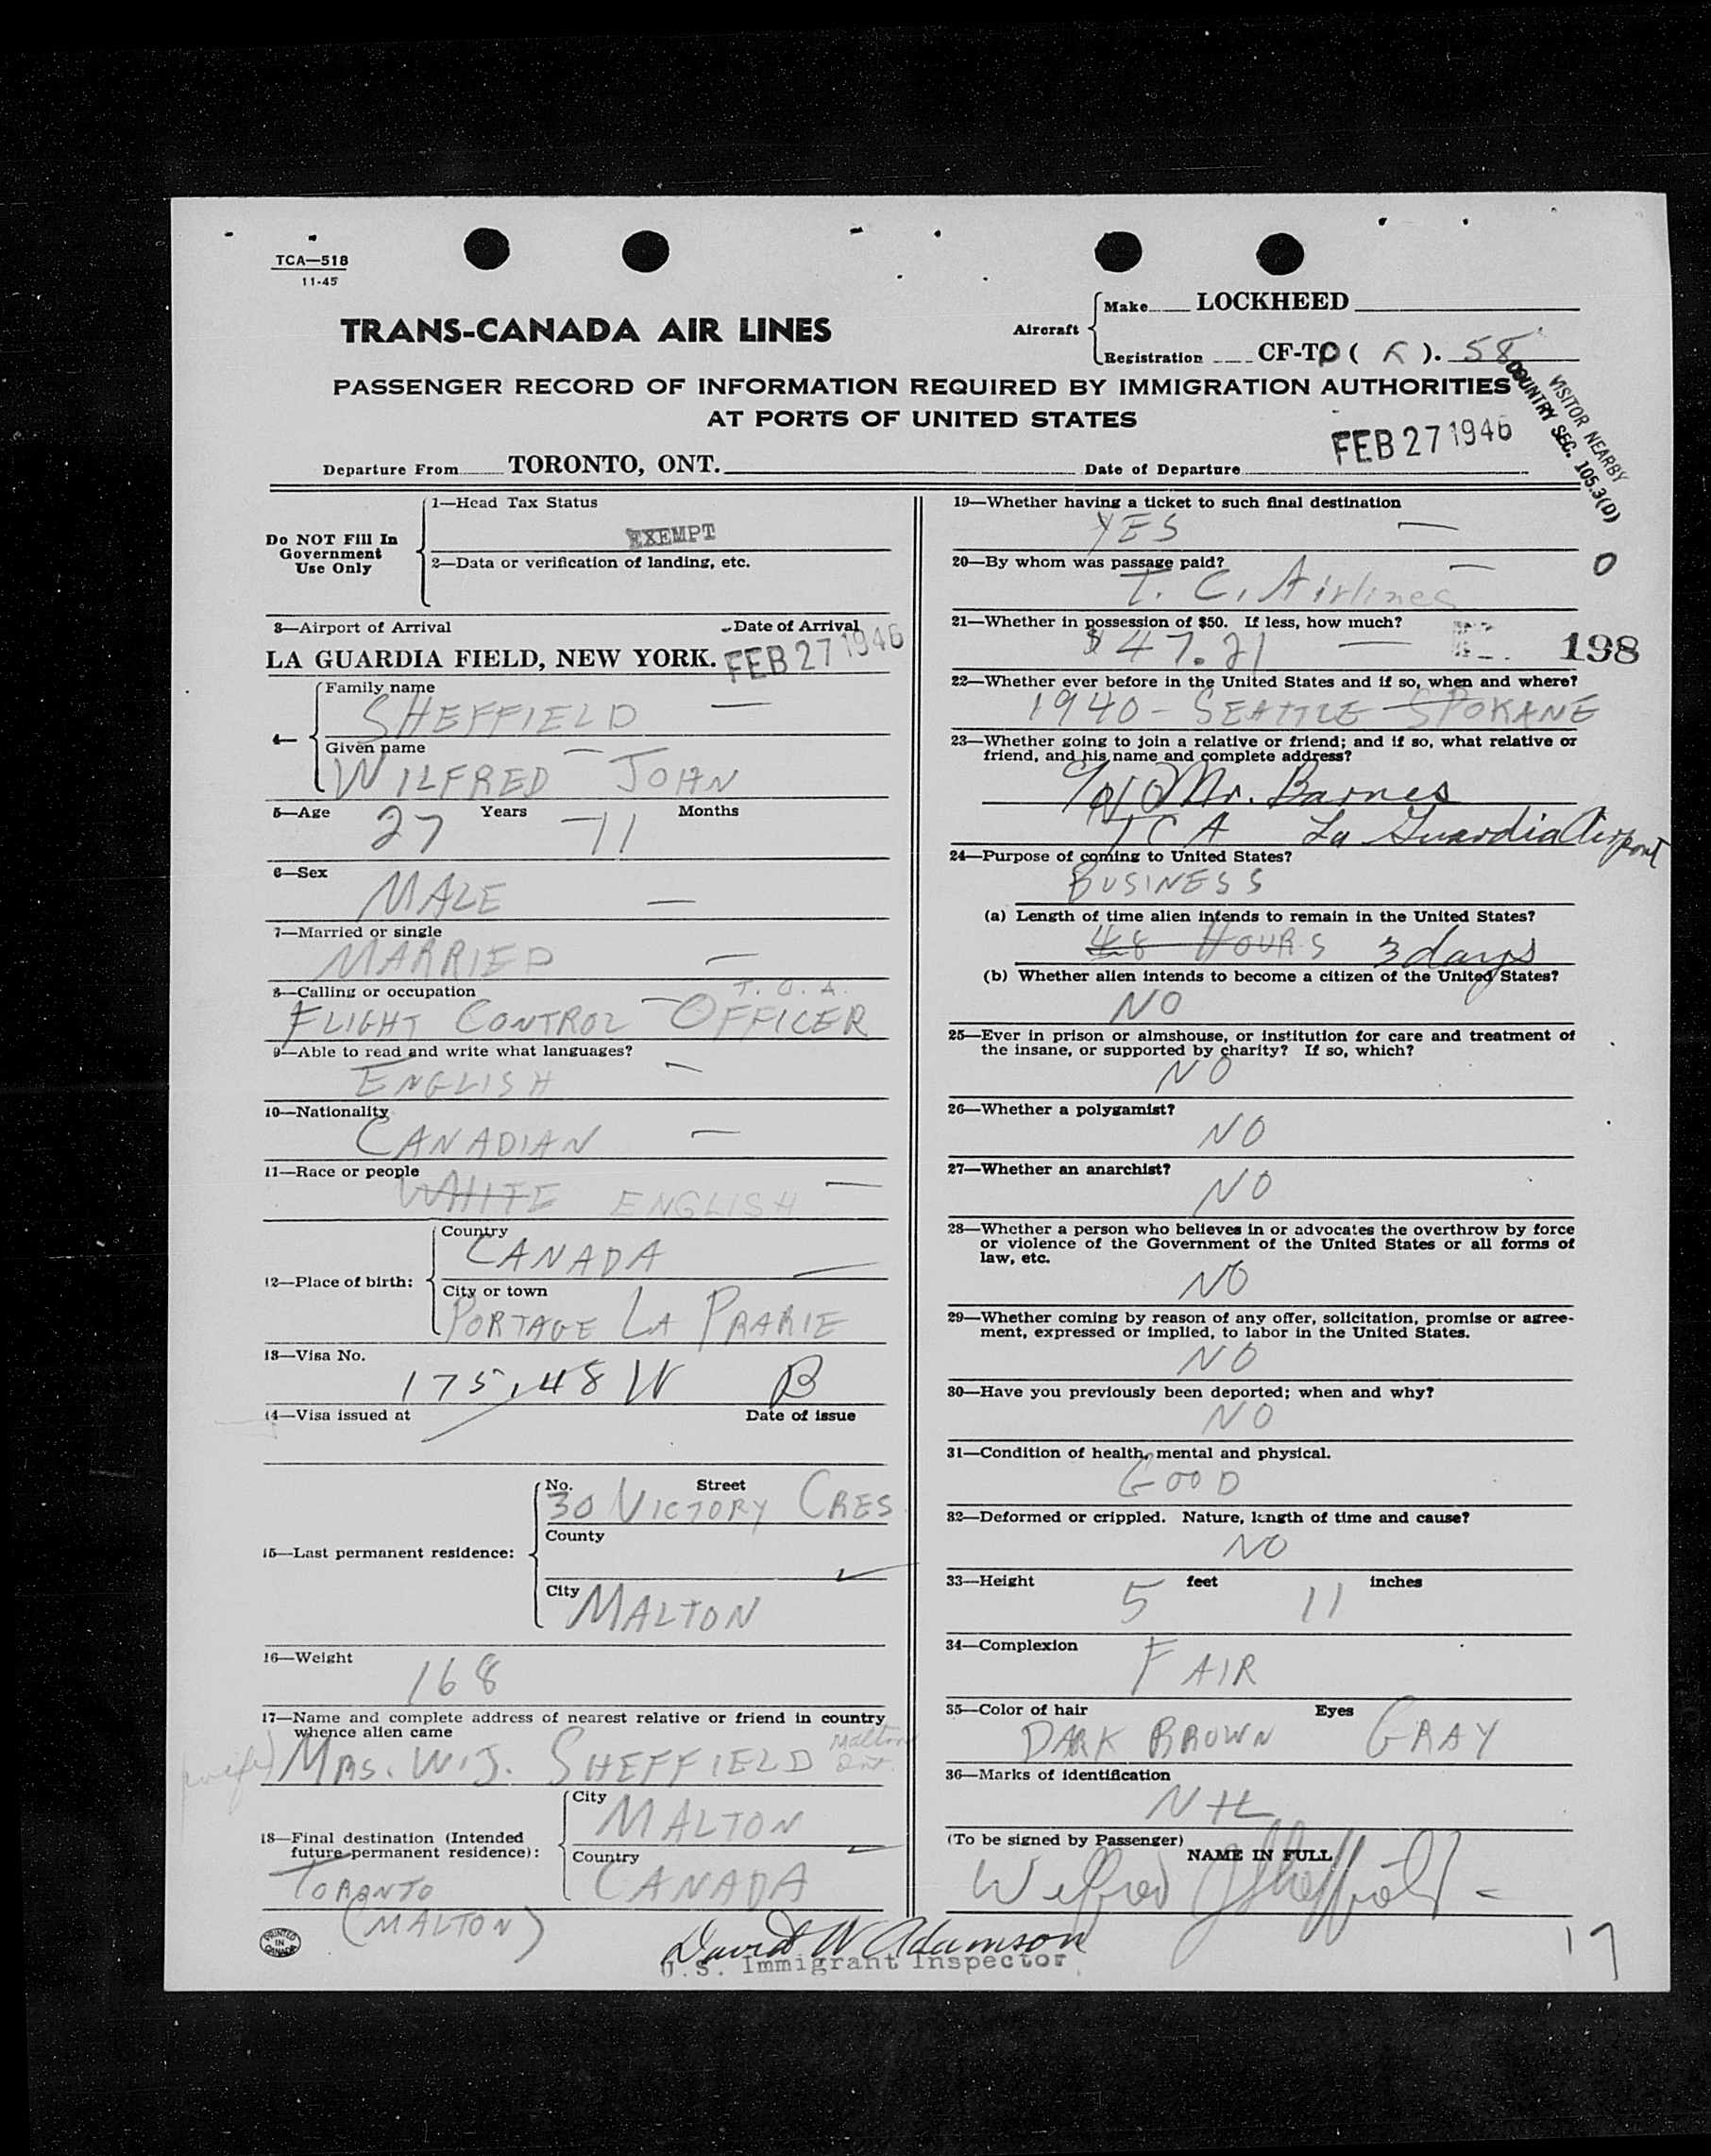 TCA—518
11-45
TRANS-CANADA AIR LINES
Aircraft
Make LOCKHEED
Registration CF-T ( K ). 58
PASSENGER RECORD OF INFORMATION REQUIRED BY IMMIGRATION AUTHORITIES
AT PORTS OF UNITED STATES
VISITOR NEARBY
COUNTRY SEC. 105.3(D)
Departure From TORONTO, ONT. Date of Departure FEB 27 1946
Do NOT Fill In
Government
Use Only
1—Head Tax Status
EXEMPT
2—Data or verification of landing, etc.
3—Airport of Arrival Date of Arrival
LA GUARDIA FIELD, NEW YORK. FEB 27 1946
4—
Family name
SHEFFIELD —
Given name
WILFRED — JOHN
5—Age 27 Years — 11 Months
6—Sex
MALE —
7—Married or single
MARRIED —
8—Calling or occupation
T. C. A.
FLIGHT CONTROL — OFFICER
9—Able to read and write what languages?
ENGLISH —
10—Nationality
CANADIAN —
11—Race or people
WHITE ENGLISH —
12—Place of birth:
Country
CANADA —
City or town
PORTAGE LA PRARIE
13—Visa No.
175.48 W B
14—Visa issued at Date of issue
15—Last permanent residence:
No. Street
30 VICTORY CRES
County
City
MALTON
16—Weight
168
17—Name and complete address of nearest relative or friend in country
whence alien came
(wife) MRS. W.J. SHEFFIELD Malton
Ont.
18—Final destination (Intended
future permanent residence):
City
MALTON
Country
CANADA
TORONTO
(MALTON)
PRINTED
IN
CANADA
19—Whether having a ticket to such final destination
YES —
20—By whom was passage paid?
T. C. Airlines —
0
21—Whether in possession of $50. If less, how much?
$47.21 — 198
22—Whether ever before in the United States and if so, when and where?
1940 - SEATTLE - SPOKANE
23—Whether going to join a relative or friend; and if so, what relative or
friend, and his name and complete address?
Mr. Barnes
TCA La Guardia Airport
24—Purpose of coming to United States?
BUSINESS
(a) Length of time alien intends to remain in the United States?
48 HOURS 3 days
(b) Whether alien intends to become a citizen of the United States?
NO
25—Ever in prison or almshouse, or institution for care and treatment of
the insane, or supported by charity? If so, which?
NO
26—Whether a polygamist?
NO
27—Whether an anarchist?
NO
28—Whether a person who believes in or advocates the overthrow by force
or violence of the Government of the United States or all forms of
law, etc.
NO
29—Whether coming by reason of any offer, solicitation, promise or agree-
ment, expressed or implied, to labor in the United States.
NO
30—Have you previously been deported; when and why?
NO
31—Condition of health, mental and physical.
GOOD
32—Deformed or crippled. Nature, length of time and cause?
NO
33—Height 5 feet 11 inches
34—Complexion
FAIR
35—Color of hair Eyes
DARK BROWN GRAY
36—Marks of identification
NIL
(To be signed by Passenger)
NAME IN FULL
Wilfred J Sheffield
David W Adamson
U.S. Immigrant Inspector
17